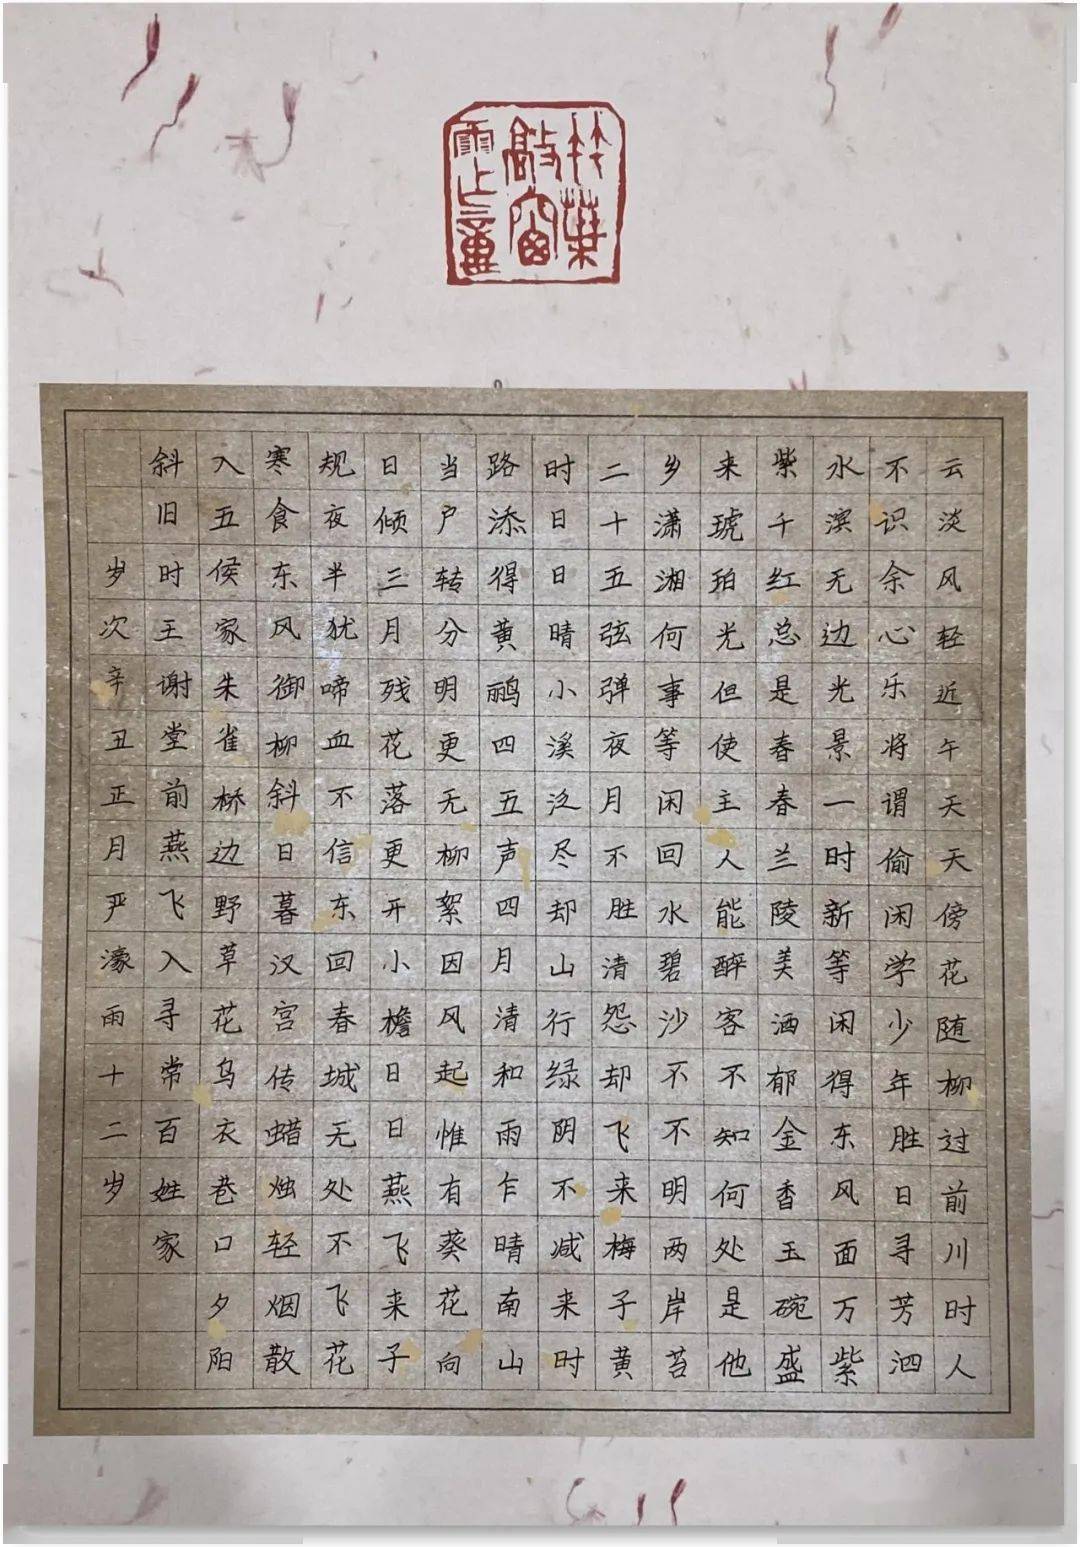 竹葉
敲窗
云淡风轻近午天天傍花随柳过前川时人
不识余心乐将谓偷闲学少年胜日寻芳泗
水滨无边光景一时新等闲得东风面万紫
紫千红总是春春兰陵美酒郁金香玉碗盛
来琥珀光但使主人能醉客不知何处是他
乡潇湘何事等闲回水碧沙不不明两岸苔
二十五弦弹夜月不胜清怨却飞来梅子黄
时日日晴小溪泛尽却山行绿阴不减来时
路添得黄鹂四五声四月清和雨乍晴南山
当户转分明更无柳絮因风起惟有葵花向
日倾三月残花落更开小檐日日燕飞来子
规夜半犹啼血不信东回春城无处不飞花
寒食东风御柳斜日暮汉宫传蜡烛轻烟散
入五侯家朱雀桥边野草花乌衣巷口夕阳
斜旧时王谢堂前燕飞入寻常百姓家
岁次辛丑正月严濠雨十二岁